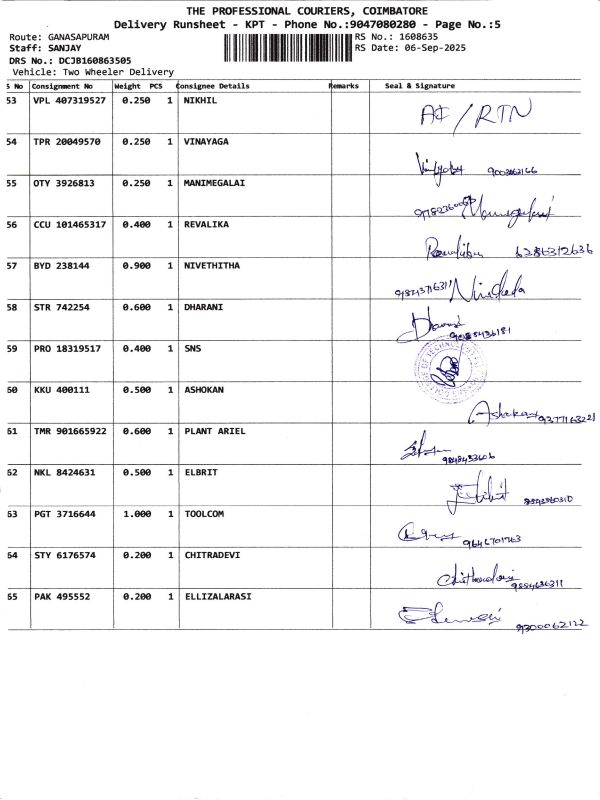 THE PROFESSIONAL COURIERS, COIMBATORE
Delivery Runsheet - KPT - Phone No.:9047080280 - Page No.:5
Route: GANASAPURAM RS No.: 1608635
Staff: SANJAY RS Date: 06-Sep-2025
DRS No.: DCJB160863505
Vehicle: Two Wheeler Delivery
S No Consignment No Weight PCS Consignee Details Remarks Seal & Signature
53 VPL 407319527 0.250 1 NIKHIL
/ RTN
54 TPR 20049570 0.250 1 VINAYAGA
55 OTY 3926813 0.250 1 MANIMEGALAI
56 CCU 101465317 0.400 1 REVALIKA
6286312636
57 BYD 238144 0.900 1 NIVETHITHA
58 STR 742254 0.600 1 DHARANI
59 PRO 18319517 0.400 1 SNS
60 KKU 400111 0.500 1 ASHOKAN
Ashokan 9377163221
61 TMR 901665922 0.600 1 PLANT ARIEL
62 NKL 8424631 0.500 1 ELBRIT
63 PGT 3716644 1.000 1 TOOLCOM
9646701763
64 STY 6176574 0.200 1 CHITRADEVI
65 PAK 495552 0.200 1 ELLIZALARASI
9300062122